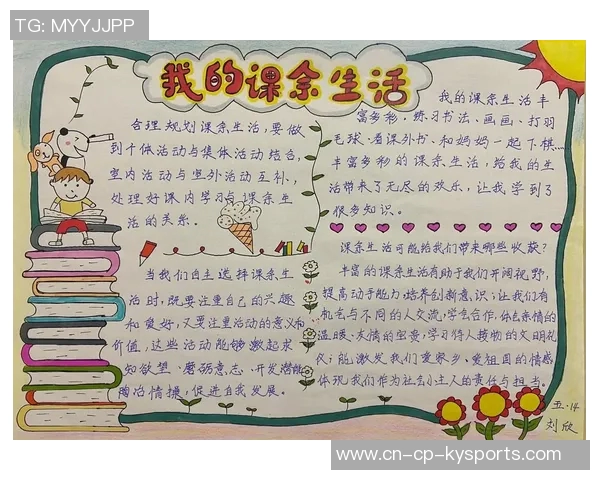 TG: MYYJJPP
我的课余生活
合理规划课余生活,要做
到个体活动与集体活动结合,
室内活动与室外活动互补,
处理好课内学习与课余生
活的关系。
当我们自主选择课余生
活时,既要注重自己的兴趣
和爱好,又要注重活动的意义和
价值,这些活动能够激起求
知欲望、磨砺意志、开发潜能、
陶冶情操,促进自我发展。
我的课余生活丰
富多彩。练习书法、画画、打羽
毛球、看课外书、和妈妈一起下棋...
丰富多彩的课余生活,给我的生
活带来了无尽的欢乐,让我学到了
很多知识。
课余生活可能给我们带来哪些收获?
丰富的课余生活有助于我们开阔视野,
提高动手能力,培养创新意识;让我们有
机会与不同的人交流,学会合作,体色亲情的
温暖、友情的宝贵,学习待人接物的文明礼
仪;能激发我们爱家乡、爱祖国的情感,
体现我们作为社会小主人的责任与担当。
五.14
刘欣
www-cn-cp-kysports.com